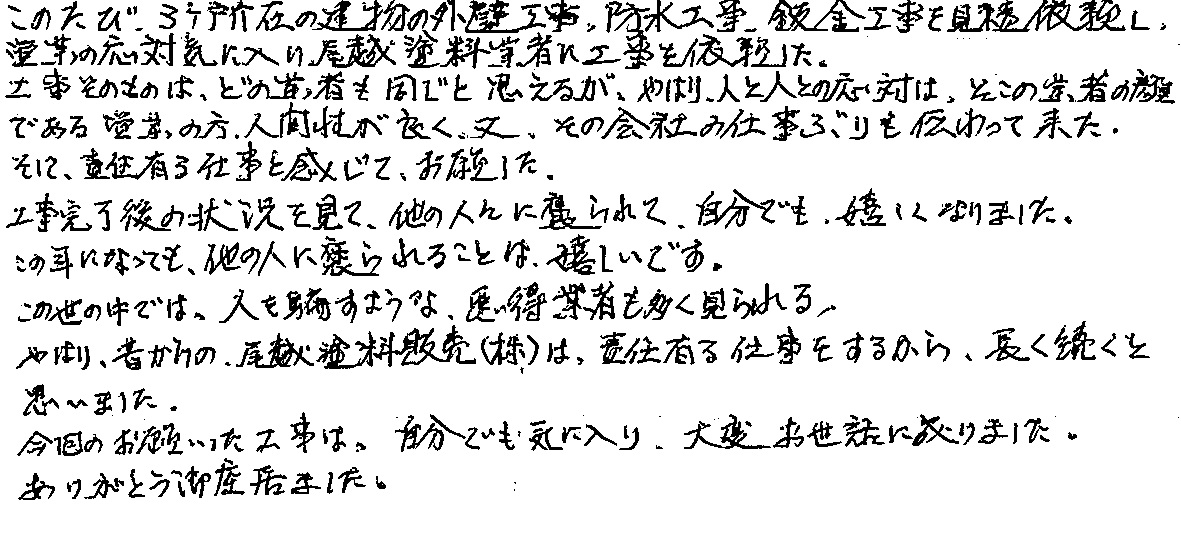 このたび、3ヶ所在の建物の外壁工事、防水工事、鈑金工事を見積依頼し、
営業の応対気に入り、尾越塗料業者に工事を依頼した。
工事そのものは、どの業者も同じと思えるが、やはり、人と人との応対は、そこの業者の顔
である営業の方、人間性が良く、又、その会社の仕事ぶりも伝わって来た。
そして、責任有る仕事と感んじて、お願した。
工事完了後の状況を見て、他の人々に褒られて、自分でも、嬉しくなりました。
この年になっても、他の人に褒られることは、嬉しいです。
この世の中では、人を騙すような、悪い得業者も多く見られる。
やはり、昔からの、尾越塗料販売(株)は、責任有る仕事をするから、長く続くと
思いました。
今回のお願いった工事は、自分でも気に入り、大変お世話に成りました。
ありがとう御座居ました。